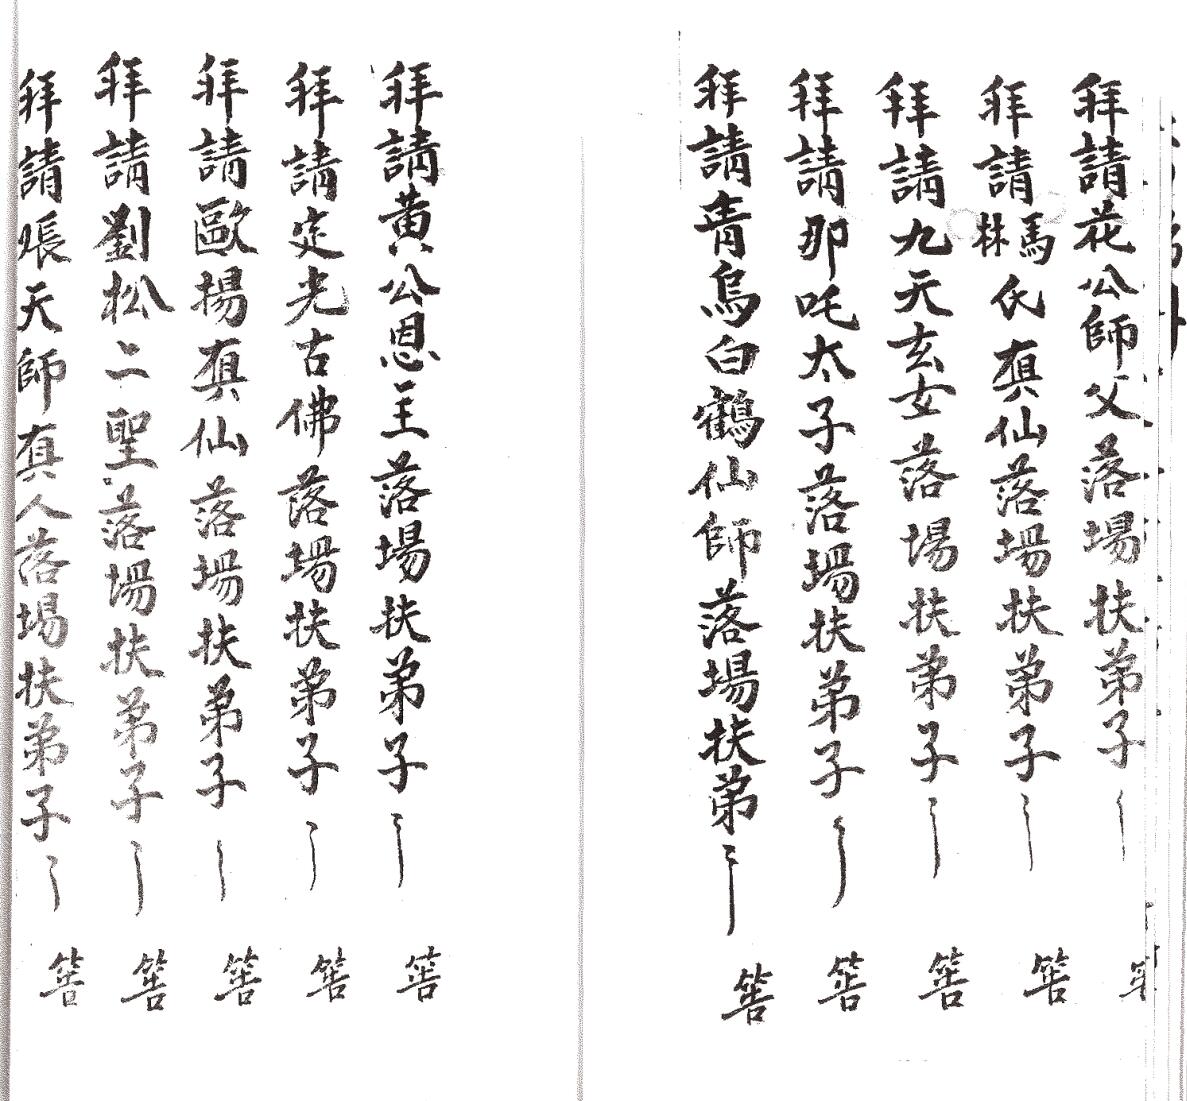 拜請花公師父落場扶弟子
拜請馬林氏真仙落場扶弟子 筶
拜請九天玄女落場扶弟子 筶
拜請那吒太子落場扶弟子 筶
拜請青烏白鶴仙師落場扶弟 筶
拜請黃公恩主落場扶弟子 筶
拜請定光古佛落場扶弟子 筶
拜請歐揚真仙落場扶弟子 筶
拜請劉松二聖落場扶弟子 筶
拜請張天師真人落場扶弟子 筶